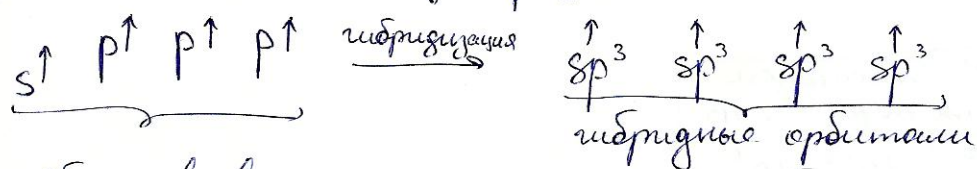 s↑ p↑ p↑ p↑ гибридизация sp³ sp³ sp³ sp³
гибридные орбитали